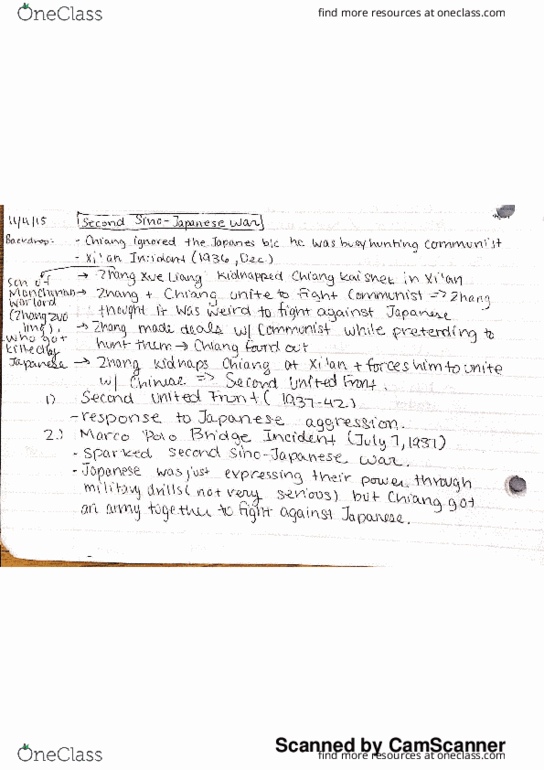 OneClass
find more resources at oneclass.com
11/4/15 Second Sino-Japanese War
Backdrop: - Chiang ignored the Japanes b/c he was busy hunting communist
- Xi'an Incident (1936, Dec)
→ Zhang Xue Liang kidnapped Chiang Kai Shek in Xi'an
son of Manchurian warlord (Zhang Zuo ling), who got killed by Japanese
→ Zhang + Chiang unite to fight Communist => Zhang
thought it was weird to fight against Japanese
→ Zhang made deals w/ Communist while pretending to
hunt them → Chiang found out
→ Zhang kidnaps Chiang at Xi'an + forces him to unite
w/ Chinese => Second United Front.
1) Second United Front ( 1937-42)
- response to Japanese aggression.
2.) Marco Polo Bridge Incident (July 7, 1937)
- Sparked second Sino-Japanese war.
- Japanese was just expressing their power through
military drills (not very serious) but Chiang got
an army together to fight against Japanese.
Scanned by CamScanner
OneClass
find more resources at oneclass.com